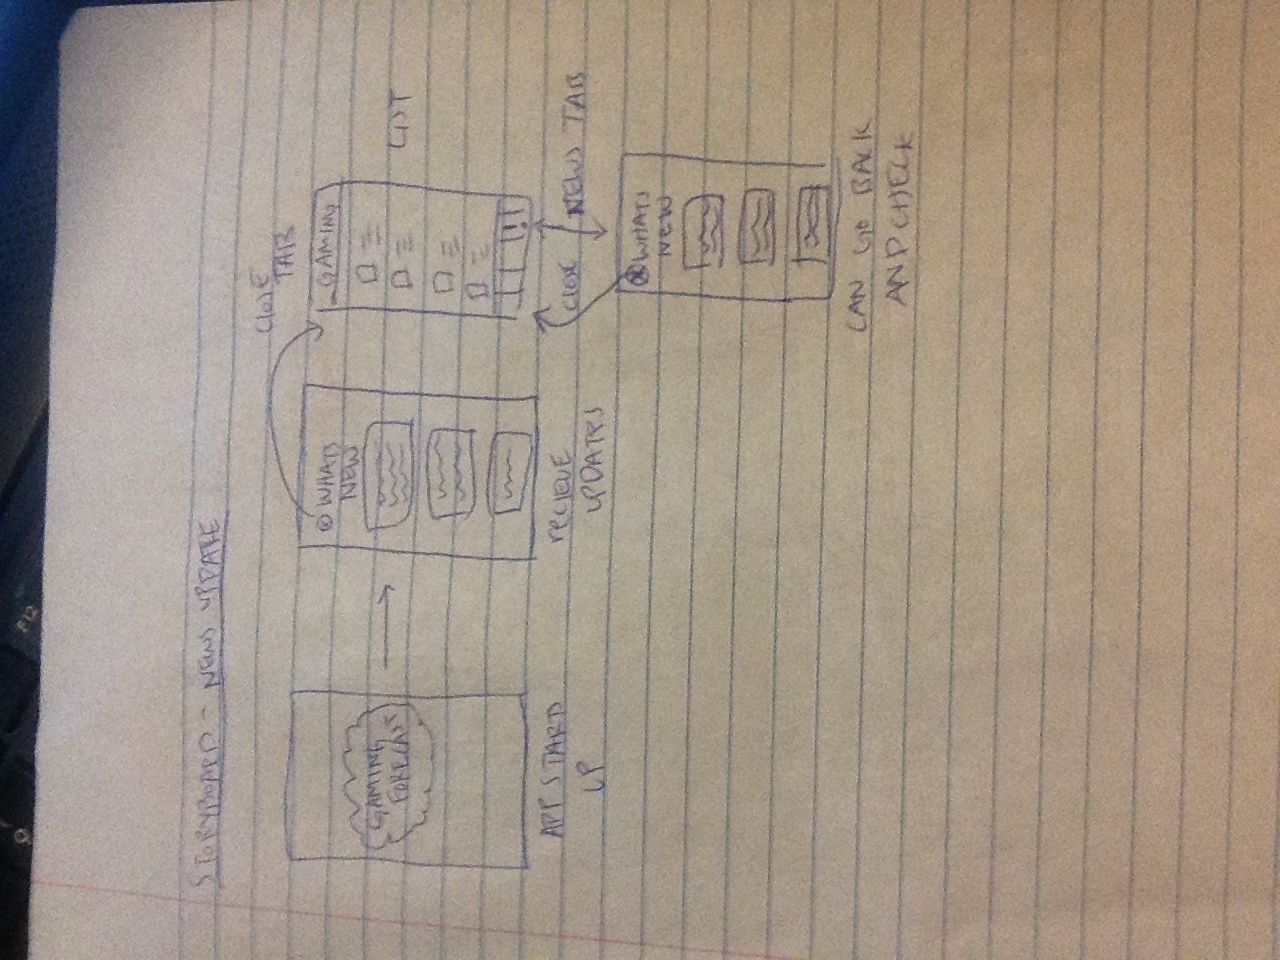 STORYBOARD - NEWS UPDATE
GAMING
FORECAST
APP START
UP
WHATS
NEW
RECIEVE
UPDATES
CLOSE
TAB
GAMING
!
LIST
CLOSE
NEWS TAB
WHATS
NEW
CAN GO BACK
AND CHECK
F12